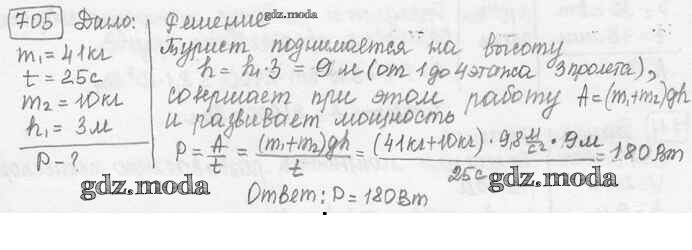 705 Дано:
m₁ = 41 кг
t = 25 с
m₂ = 10 кг
h₁ = 3 м
P - ?
Решение
gdz.moda
Турист поднимается на высоту
h = h₁·3 = 9 м (от 1 до 4 этажа 3 пролета),
совершает при этом работу A = (m₁+m₂)gh
и развивает мощность
P = A/t = (m₁+m₂)gh/t = (41кг+10кг)·9,8 м/с²·9м/25с = 180 Вт
gdz.moda
gdz.moda
Ответ: P = 180 Вт